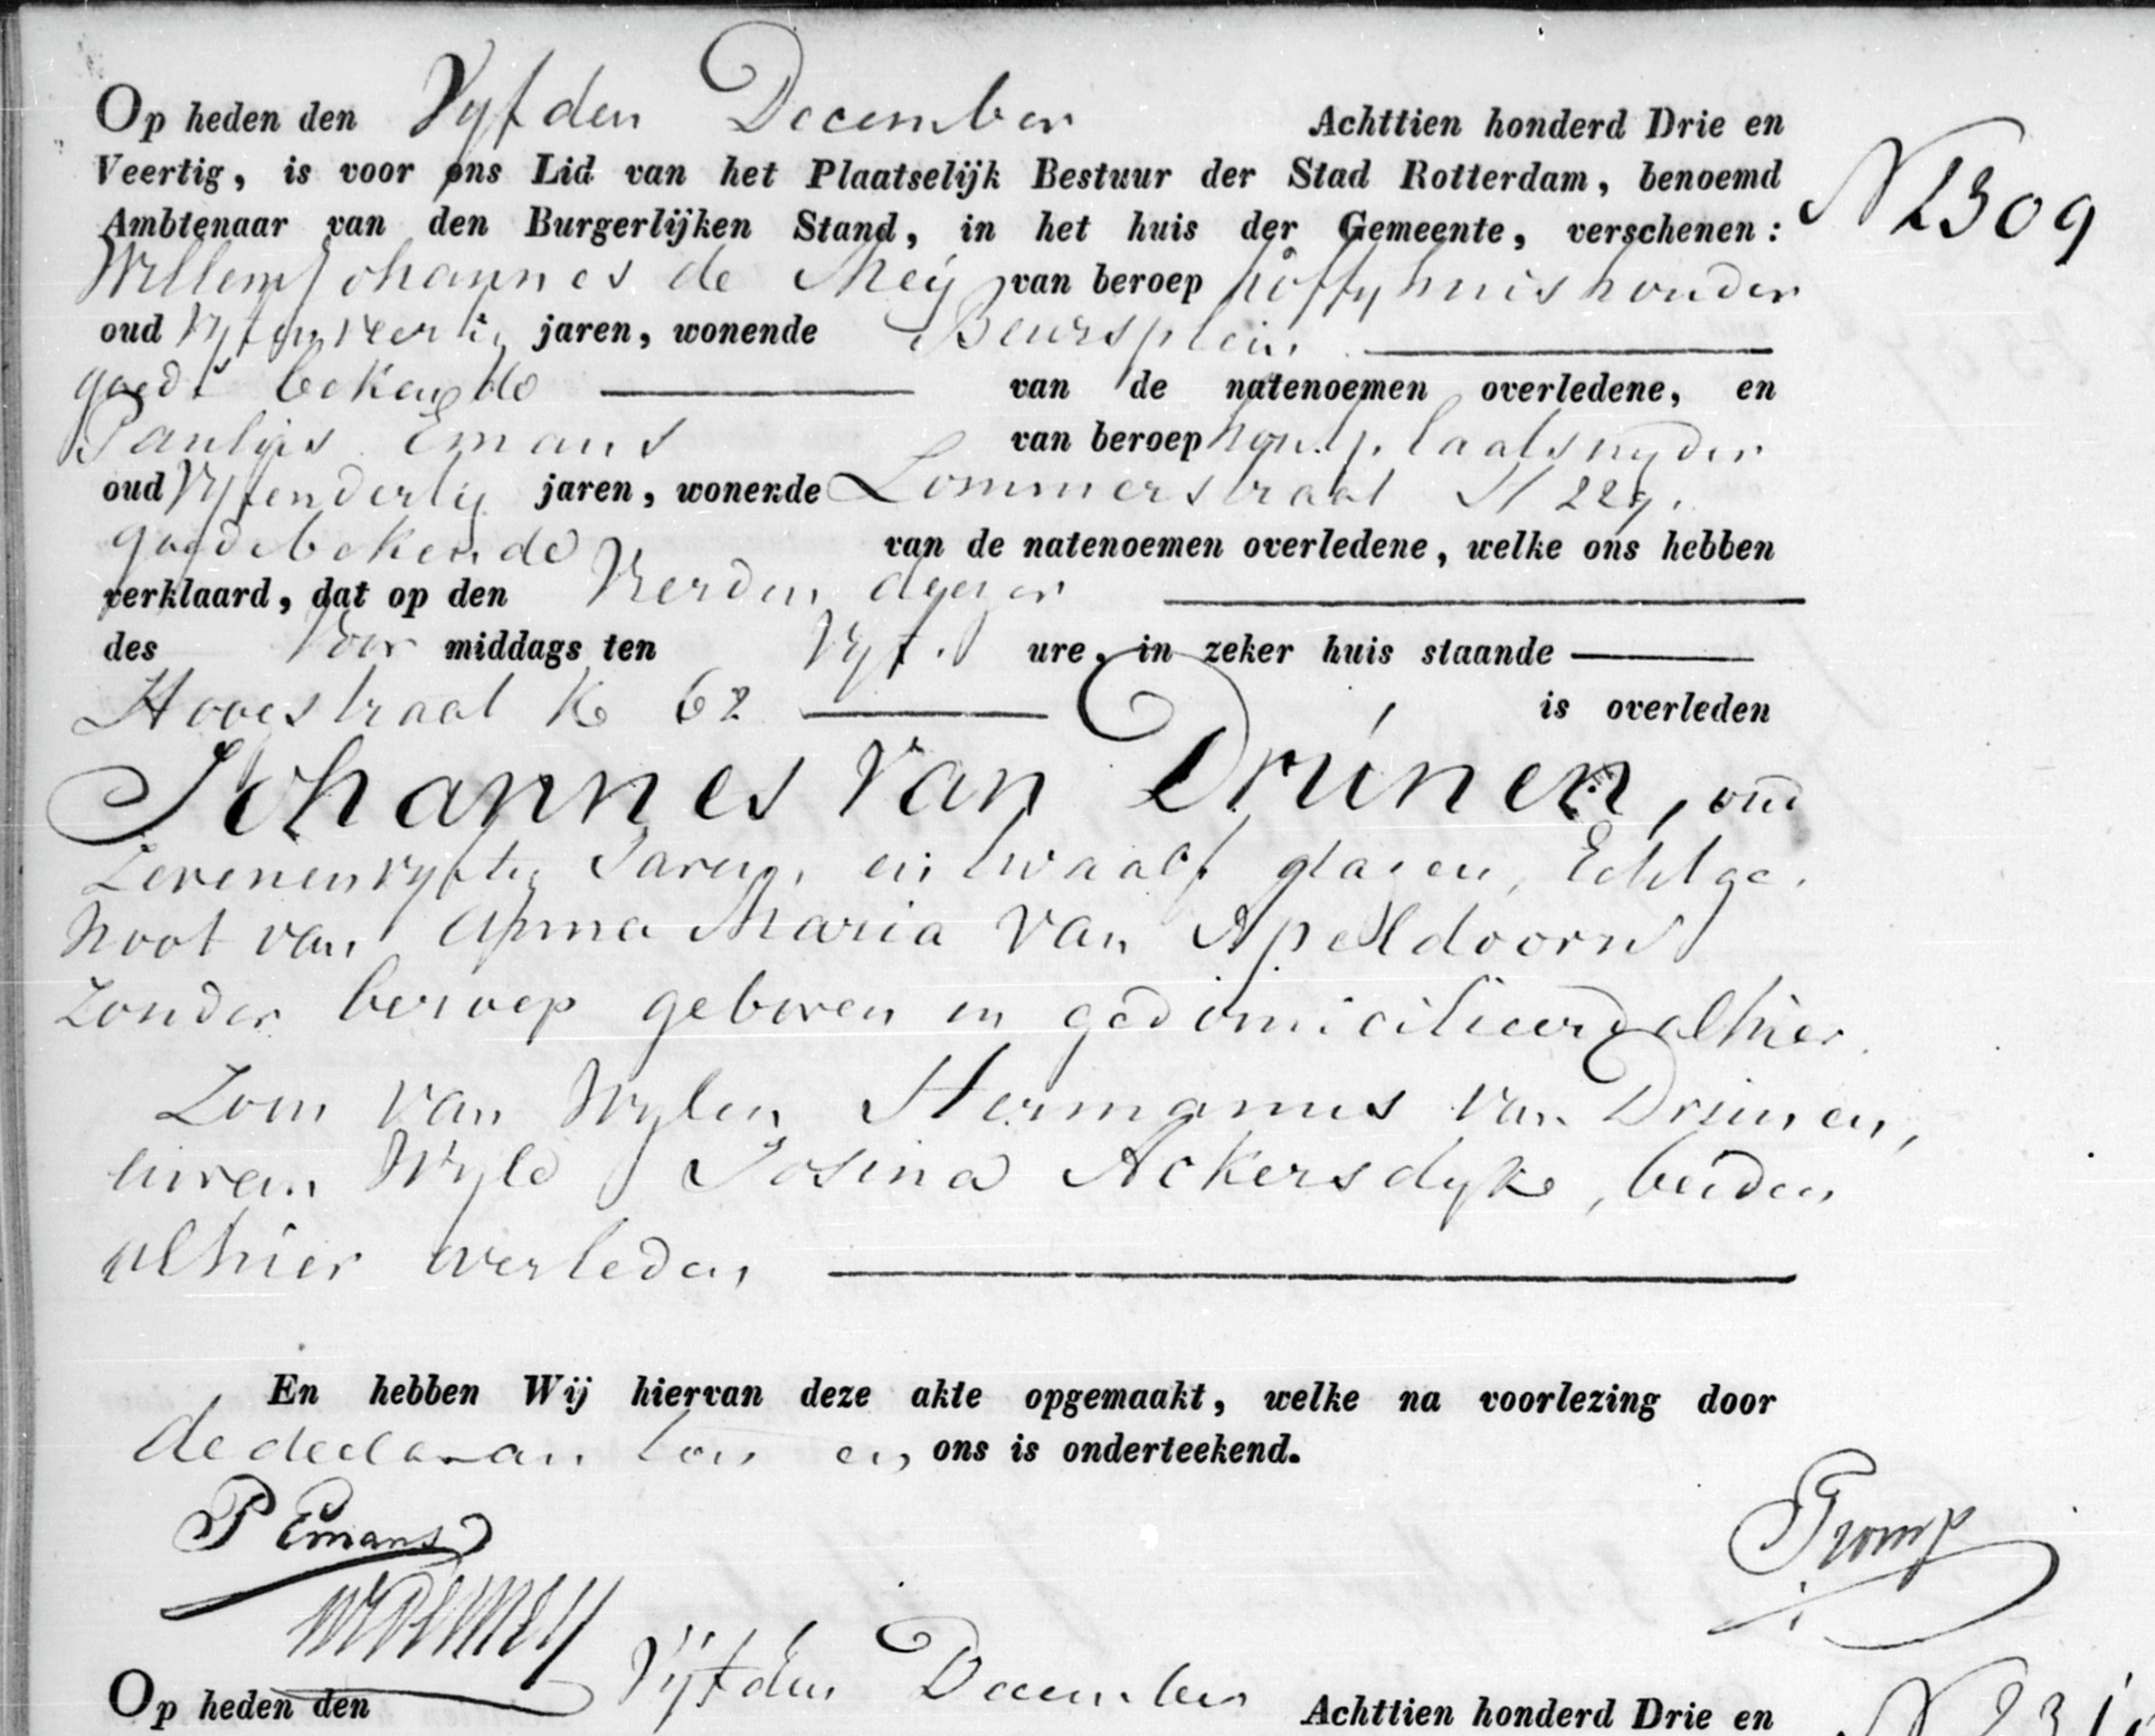 Op heden den Vyfden December Achttien honderd Drie en
Veertig, is voor ons Lid van het Plaatselijk Bestuur der Stad Rotterdam, benoemd
N 2309
Ambtenaar van den Burgerlijken Stand, in het huis der Gemeente, verschenen:
Willem Johannes de Meij van beroep koffyhuishouder
oud Vyfenveertig jaren, wonende Beursplein
goede bekende van de natenoemen overledene, en
Paulus Emans van beroep houtplaatsnyder
oud Vyfendertig jaren, wonende Lommerstraat N 229.
goede bekende van de natenoemen overledene, welke ons hebben
verklaard, dat op den Vierden dezer
des Voor middags ten Vyf ure, in zeker huis staande
Hoogstraat K 62 is overleden
Johannes van Drúnen, oud
Zevenenvyftig Jaren, en twaalf dagen, Echtge-
noot van Anna Maria van Apeldoorn
zonder beroep geboren en gedomicilieerd alhier.
Zoon van Wylen Hermanus van Drunen,
en van Wyle Josina Ackersdyk, beiden
alhier overleden
En hebben Wij hiervan deze akte opgemaakt, welke na voorlezing door
de declaranten en ons is onderteekend.
P Emans
Tromp
WJ DE MEIJ
Op heden den Vijfden December Achttien honderd Drie en